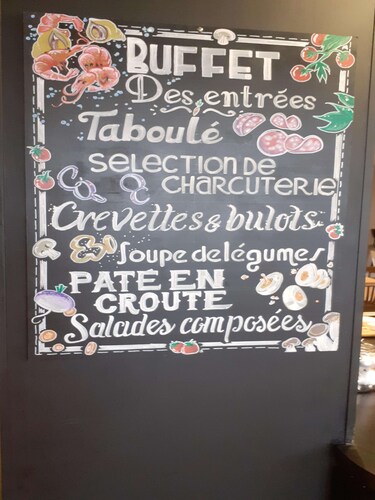 BUFFET
Des entrées
Taboulé
SELECTION DE
CHARCUTERIE
Crevettes & bulots
Soupe de légumes
PATE EN
CROUTE
Salades composées